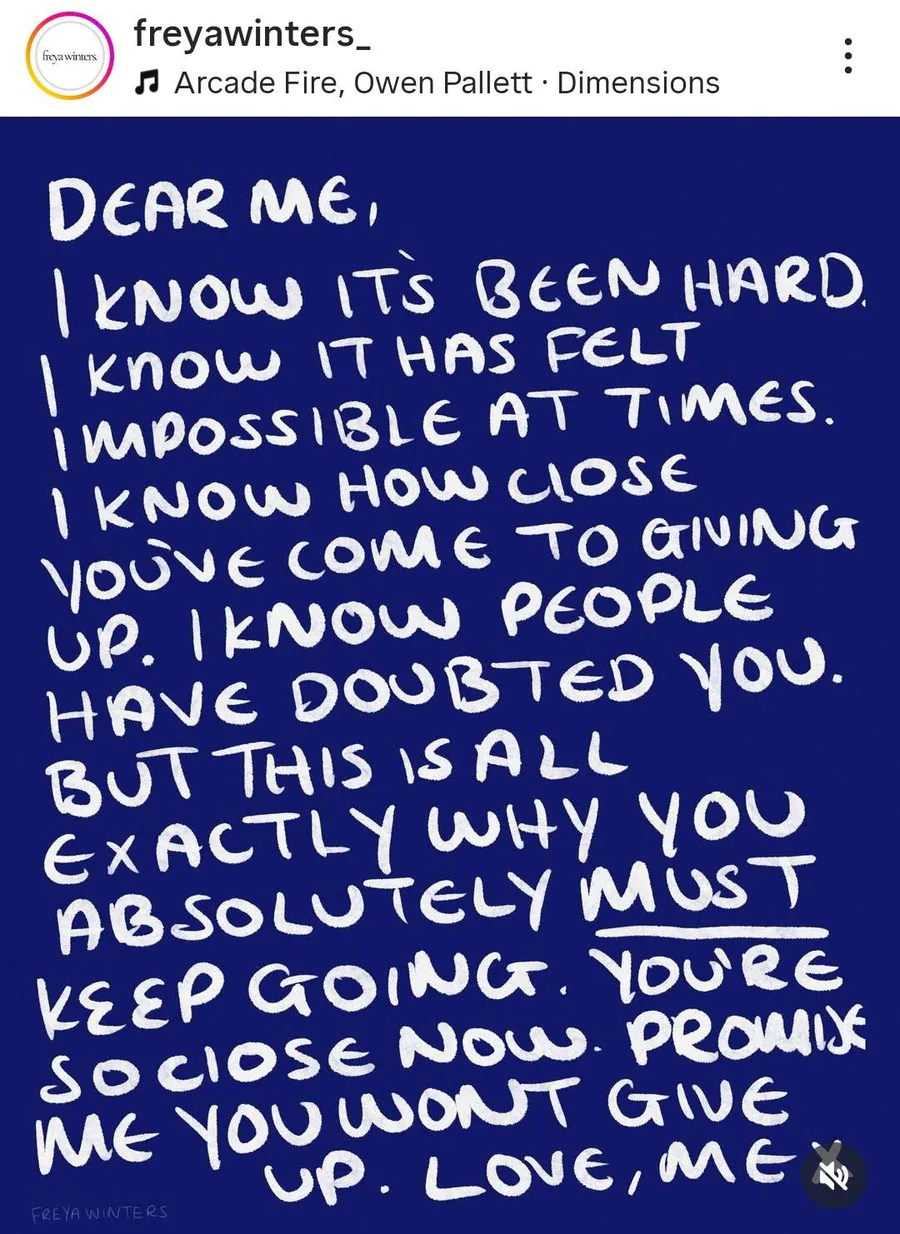 freyawinters_
freya winters.
Arcade Fire, Owen Pallett · Dimensions
DEAR ME,
I KNOW IT'S BEEN HARD.
I KNOW IT HAS FELT
IMPOSSIBLE AT TIMES.
I KNOW HOW CLOSE
YOU'VE COME TO GIVING
UP. I KNOW PEOPLE
HAVE DOUBTED YOU.
BUT THIS IS ALL
EXACTLY WHY YOU
ABSOLUTELY MUST
KEEP GOING. YOU'RE
SO CLOSE NOW. PROMISE
ME YOU WONT GIVE
UP. LOVE, ME X
FREYA WINTERS